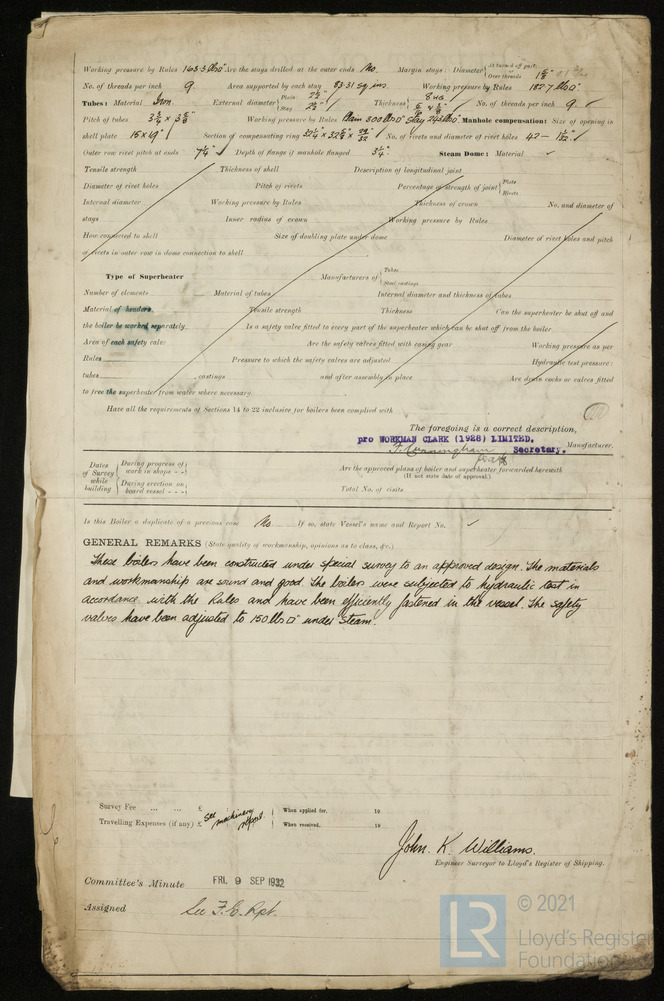 Working pressure by Rules 163.5 lbs□" Are the stays drilled at the outer ends No. Margin stays: Diameter { At turned off part, Over threads 1⅝"
No. of threads per inch 9. Area supported by each stay 83.31 sq ins. Working pressure by Rules 182.7 lbs□"
Tubes: Material Iron. External diameter { Plain 2½" Stay 2½" Thickness { 8 WG No. of threads per inch 9.
Pitch of tubes Working pressure by Rules Plain 300 lbs□" Stay 243 lbs□" Manhole compensation: Size of opening in
shell plate 15 x 19" Section of compensating ring No. of rivets and diameter of rivet holes 42 –
Outer row rivet pitch at ends 7¼" Depth of flange if manhole flanged 3¼" Steam Dome: Material
Tensile strength Thickness of shell Description of longitudinal joint
Diameter of rivet holes Pitch of rivets Percentage of strength of joint { Plate Rivets
Internal diameter Working pressure by Rules Thickness of crown No. and diameter of
stays Inner radius of crown Working pressure by Rules
How connected to shell Size of doubling plate under dome Diameter of rivet holes and pitch
of rivets in outer row in dome connection to shell
Type of Superheater Manufacturers of { Tubes Steel castings
Number of elements Material of tubes Internal diameter and thickness of tubes
Material of headers Tensile strength Thickness Can the superheater be shut off and
the boiler be worked separately Is a safety valve fitted to every part of the superheater which can be shut off from the boiler
Area of each safety valve Are the safety valves fitted with easing gear Working pressure as per
Rules Pressure to which the safety valves are adjusted Hydraulic test pressure:
tubes castings and after assembly in place Are drain cocks or valves fitted
to free the superheater from water where necessary.
Have all the requirements of Sections 14 to 22 inclusive for boilers been complied with
The foregoing is a correct description,
pro WORKMAN CLARK (1928) LIMITED.
Secretary. Manufacturer.
Dates of Survey while building { During progress of work in shops - - During erection on board vessel - - -
Are the approved plans of boiler and superheater forwarded herewith
(If not state date of approval.)
Total No. of visits
Is this Boiler a duplicate of a previous case No. If so, state Vessel's name and Report No.
GENERAL REMARKS (State quality of workmanship, opinions as to class, &c.)
These boilers have been constructed under special survey to an approved design. The materials
and workmanship are sound and good. The boilers were subjected to hydraulic test in
accordance with the Rules and have been efficiently fastened in the vessel. The safety
valves have been adjusted to 150 lbs□" under steam.
Survey Fee ... ... £ When applied for, 19
Travelling Expenses (if any) £ See machinery report. When received, 19
John. K. Williams.
Engineer Surveyor to Lloyd's Register of Shipping.
Committee's Minute FRI. 9 SEP 1932
Assigned See F.E. Rpt.
LR © 2021
Lloyd's Register
Foundation